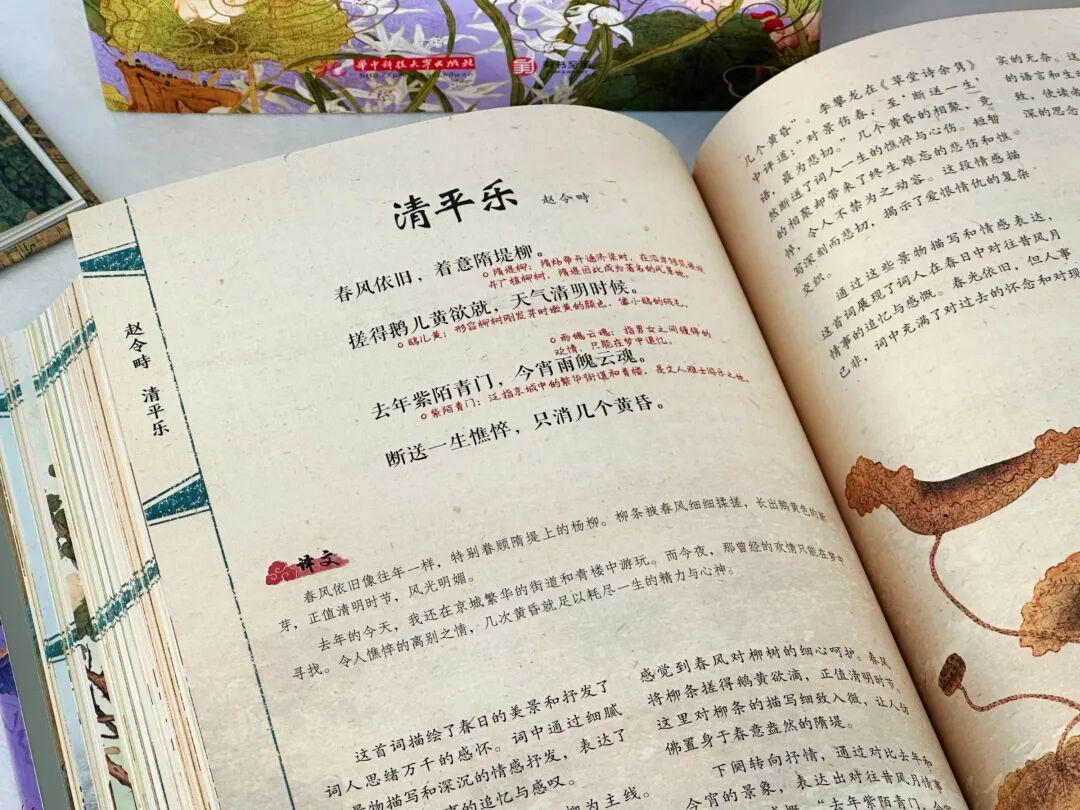 华中科技大学出版社
清平乐 赵令畤
春风依旧，着意隋堤柳。
隋堤柳：隋炀帝开通济渠时，在沿岸
并广植柳树，隋堤因此成为著名的风景地。
搓得鹅儿黄欲就，天气清明时候。
鹅儿黄：形容柳树刚发芽时嫩黄的颜色，像小鹅的绒毛。
雨魄云魂：指男女之间缠绵的
欢情，只能在梦中追忆。
去年紫陌青门，今宵雨魄云魂。
紫陌青门：泛指京城中的繁华街道和青楼，是文人雅士游乐之地。
断送一生憔悴，只消几个黄昏。
赵令畤 清平乐
译文
春风依旧像往年一样，特别眷顾隋堤上的杨柳。柳条被春风细细揉搓，长出鹅黄色的新
芽，正值清明时节，风光明媚。
去年的今天，我还在京城繁华的街道和青楼中游玩。而今夜，那曾经的欢情只能在梦中
寻找。令人憔悴的离别之情，几次黄昏就足以耗尽一生的精力与心神。
这首词描绘了春日的美景和抒发了
词人思绪万千的感怀。词中通过细腻
景物描写和深沉的情感抒发，表达了
的追忆与感叹。
柳为主线。
感觉到春风对柳树的细心呵护。春风
将柳条搓得鹅黄欲滴，正值清明时节。
这里对柳条的描写细致入微，让人仿
佛置身于春意盎然的隋堤。
下阕转向抒情，通过对比去年和
今宵的景象，表达出对往昔风月情事
感慨。“去年紫陌青门，
几个黄昏”。李攀龙在《草堂诗余隽》
中评道：“对景伤春，至‘断送一生’
话，最为悲切。”几个黄昏的相聚，竟
然断送了词人一生的憔悴与心伤。短暂
的相聚却带来了终生难忘的悲伤和憔
悴，令人不禁为之动容。这段情感描
写深刻而悲切，揭示了爱恨情仇的复杂
交织。
通过这些景物描写和情感表达，
这首词展现了词人在春日中对往昔风月
情事的追忆与感慨。春光依旧，但人事
已非，词中充满了对过去的怀念和对现
实的无奈。这
的语言和生
致，使读者
深的思念